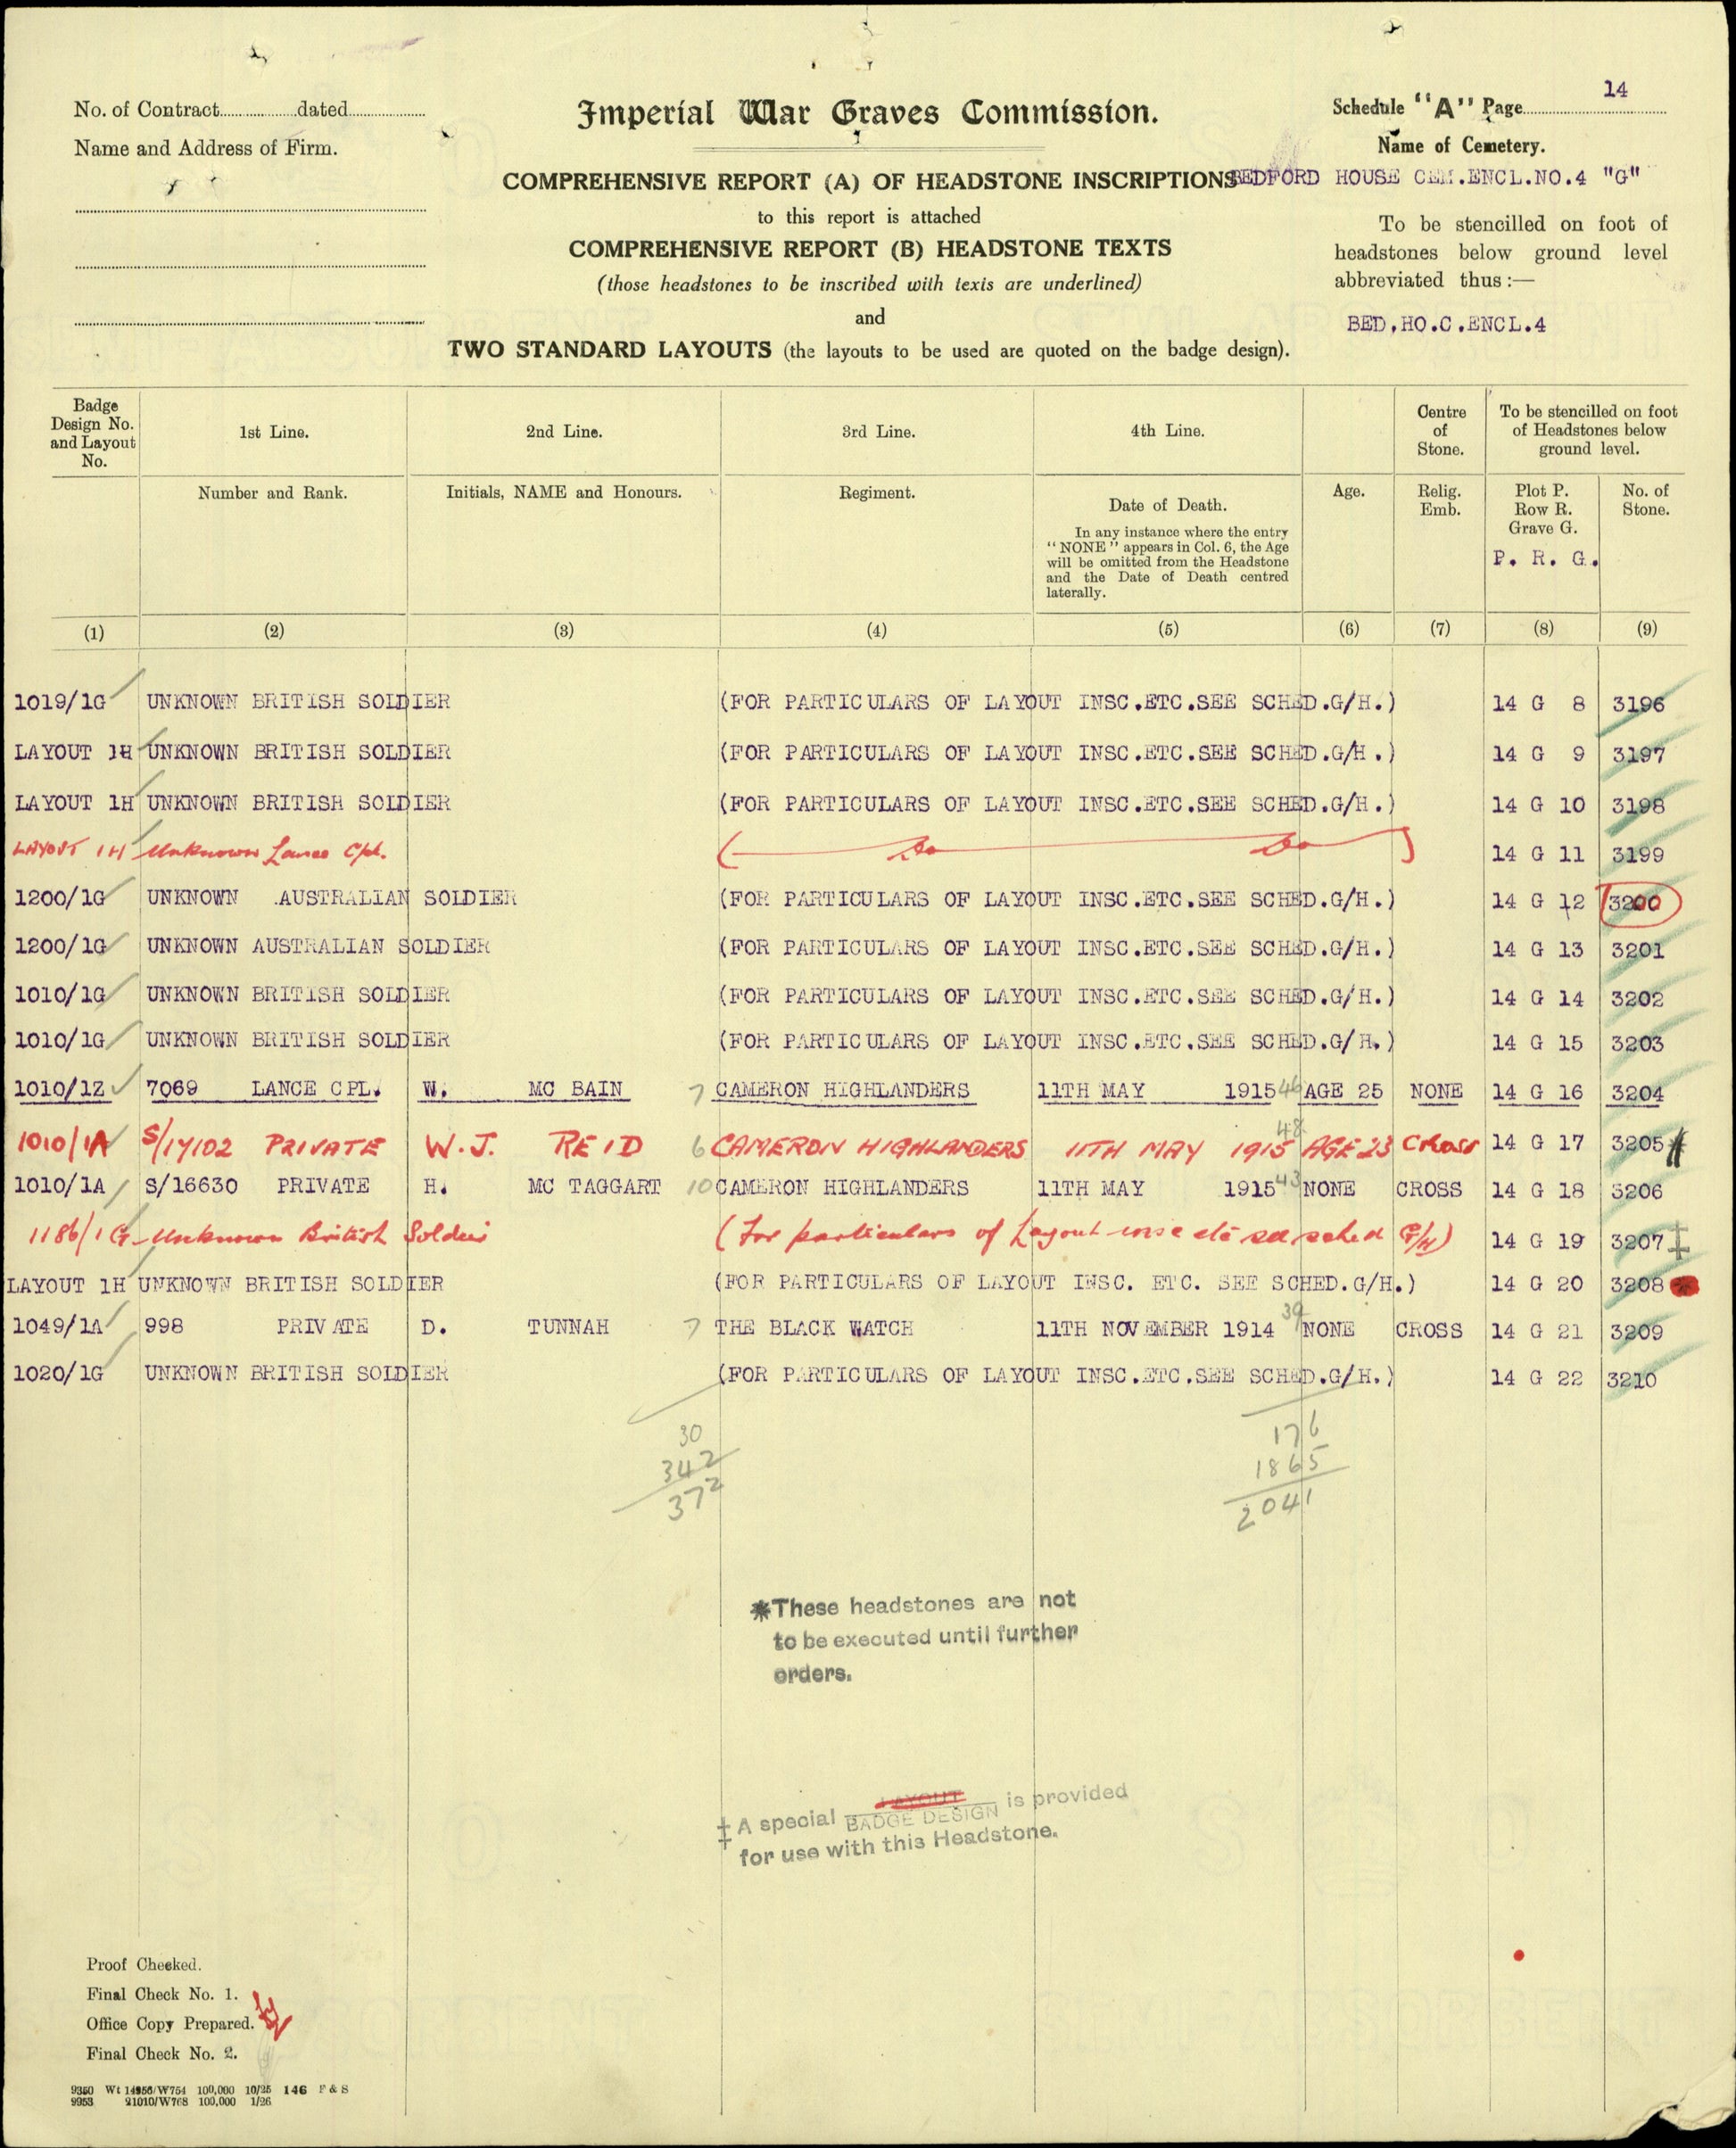 No. of Contract..................dated..................
Name and Address of Firm.
Imperial War Graves Commission.
COMPREHENSIVE REPORT (A) OF HEADSTONE INSCRIPTIONS
to this report is attached
COMPREHENSIVE REPORT (B) HEADSTONE TEXTS
(those headstones to be inscribed with texts are underlined)
and
TWO STANDARD LAYOUTS (the layouts to be used are quoted on the badge design).
Schedule "A" Page 14
Name of Cemetery.
BEDFORD HOUSE CEM.ENCL.NO.4 "G"
To be stencilled on foot of
headstones below ground level
abbreviated thus :—
BED.HO.C.ENCL.4
Badge Design No. and Layout No.
1st Line.
2nd Line.
3rd Line.
4th Line.
Centre of Stone.
To be stencilled on foot of Headstones below ground level.
Number and Rank.
Initials, NAME and Honours.
Regiment.
Date of Death.
In any instance where the entry
"NONE" appears in Col. 6, the Age
will be omitted from the Headstone
and the Date of Death centred
laterally.
Age.
Relig. Emb.
Plot P. Row R. Grave G.
P. R. G.
No. of Stone.
(1) (2) (3) (4) (5) (6) (7) (8) (9)
1019/1G UNKNOWN BRITISH SOLDIER (FOR PARTICULARS OF LAYOUT INSC.ETC.SEE SCHED.G/H.) 14 G 8 3196
LAYOUT 1H UNKNOWN BRITISH SOLDIER (FOR PARTICULARS OF LAYOUT INSC.ETC.SEE SCHED.G/H.) 14 G 9 3197
LAYOUT 1H UNKNOWN BRITISH SOLDIER (FOR PARTICULARS OF LAYOUT INSC.ETC.SEE SCHED.G/H.) 14 G 10 3198
LAYOUT 1H Unknown Lance Cpl. ( Do Do ) 14 G 11 3199
1200/1G UNKNOWN AUSTRALIAN SOLDIER (FOR PARTICULARS OF LAYOUT INSC.ETC.SEE SCHED.G/H.) 14 G 12 3200
1200/1G UNKNOWN AUSTRALIAN SOLDIER (FOR PARTICULARS OF LAYOUT INSC.ETC.SEE SCHED.G/H.) 14 G 13 3201
1010/1G UNKNOWN BRITISH SOLDIER (FOR PARTICULARS OF LAYOUT INSC.ETC.SEE SCHED.G/H.) 14 G 14 3202
1010/1G UNKNOWN BRITISH SOLDIER (FOR PARTICULARS OF LAYOUT INSC.ETC.SEE SCHED.G/H.) 14 G 15 3203
1010/1Z 7069 LANCE CPL. W. MC BAIN 7 CAMERON HIGHLANDERS 11TH MAY 1915 46 AGE 25 NONE 14 G 16 3204
1010/1A S/17102 PRIVATE W.J. REID 6 CAMERON HIGHLANDERS 11TH MAY 1915 48 AGE 23 CROSS 14 G 17 3205
1010/1A S/16630 PRIVATE H. MC TAGGART 10 CAMERON HIGHLANDERS 11TH MAY 1915 43 NONE CROSS 14 G 18 3206
1186/1G Unknown British Soldier (For particulars of Layout insc etc see sched G/H) 14 G 19 3207 ‡
LAYOUT 1H UNKNOWN BRITISH SOLDIER (FOR PARTICULARS OF LAYOUT INSC. ETC. SEE SCHED.G/H.) 14 G 20 3208
1049/1A 998 PRIVATE D. TUNNAH 7 THE BLACK WATCH 11TH NOVEMBER 1914 39 NONE CROSS 14 G 21 3209
1020/1G UNKNOWN BRITISH SOLDIER (FOR PARTICULARS OF LAYOUT INSC.ETC.SEE SCHED.G/H.) 14 G 22 3210
30 176
342 1865
372 2041
*These headstones are not
to be executed until further
orders.
‡ A special LAYOUT BADGE DESIGN is provided
for use with this Headstone.
Proof Checked.
Final Check No. 1.
Office Copy Prepared.
Final Check No. 2.
9350 Wt 14956/W754 100,000 10/25 146 F & S
9953 21010/W768 100,000 1/26